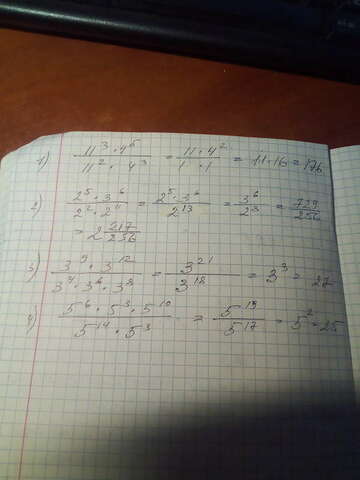 1) 11³·4⁵ / 11²·4³ = 11·4² / 1·1 = 11·16 = 176
2) 2⁵·3⁶ / 2²·2¹¹ = 2⁵·3⁶ / 2¹³ = 3⁶ / 2⁸ = 729 / 256
= 2 217/256
3) 3⁹·3¹² / 3⁴·3⁶·3⁸ = 3²¹ / 3¹⁸ = 3³ = 27
4) 5⁶·5³·5¹⁰ / 5¹⁴·5³ = 5¹⁹ / 5¹⁷ = 5² = 25